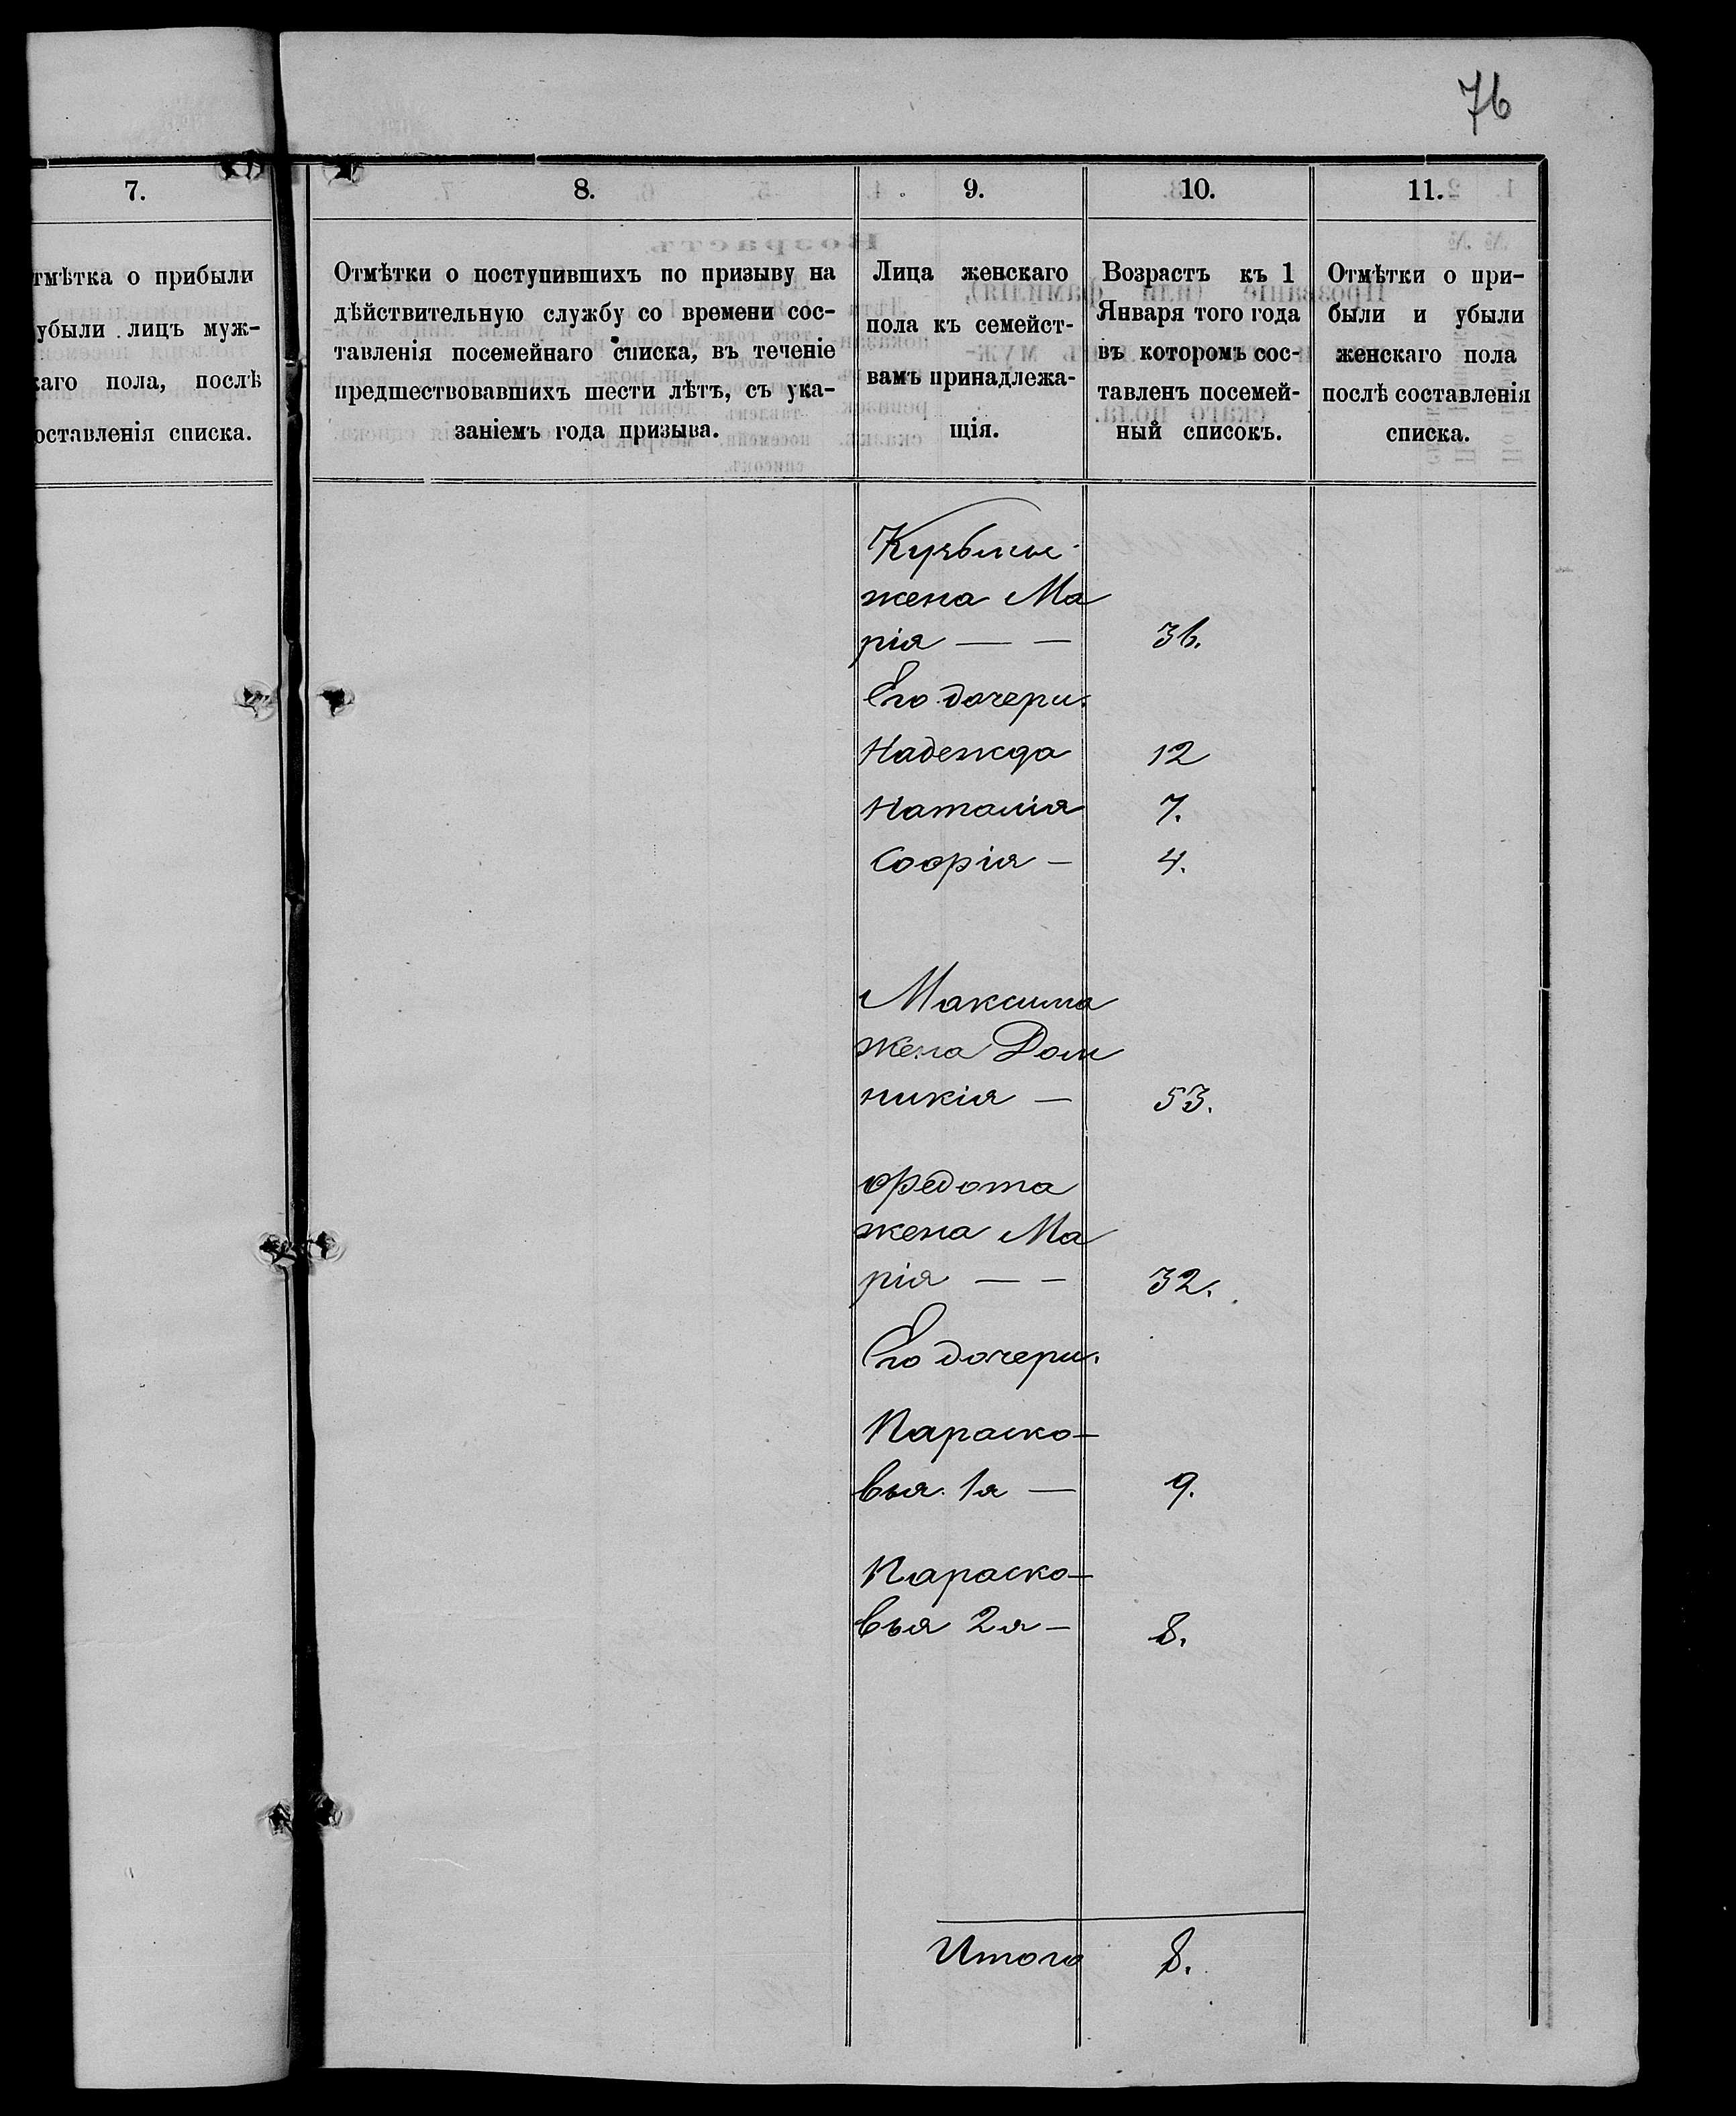 76
7.
8.
9.
10.
11.
тмѣтка о прибыли
убыли лицъ муж-
каго пола, послѣ
оставленія списка.
Отмѣтки о поступившихъ по призыву на
дѣйствительную службу со времени сос-
тавленія посемейнаго списка, въ теченіе
предшествовавшихъ шести лѣтъ, съ ука-
заніемъ года призыва.
Лица женскаго
пола къ семейст-
вамъ принадлежа-
щія.
Возрастъ къ 1
Января того года
въ которомъ сос-
тавленъ посемей-
ный списокъ.
Отмѣтки о при-
были и убыли
женскаго пола
послѣ составленія
списка.
Кузьмы
жена Ма
рія — — 36.
Его дочери.
Надежда 12
Наталія 7.
Софія — 4.
Максима
жена Дом
никія — 53.
Федота
жена Ма
рія — — 32.
Его дочери.
Параско-
вья 1я — 9.
Параско-
вья 2я — 8.
Итого 8.